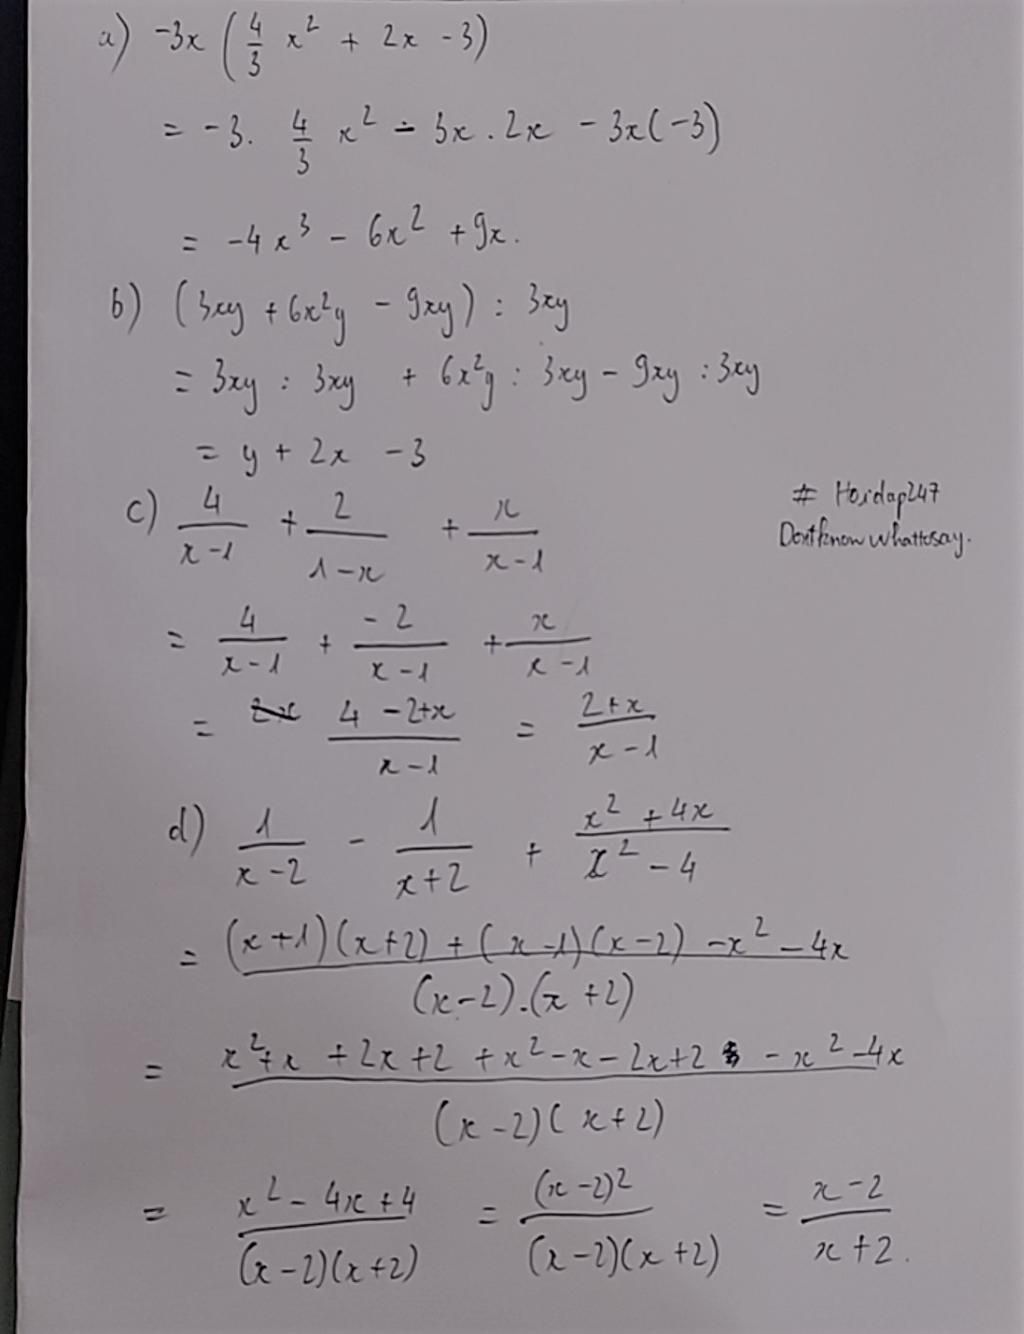 a) -3x (4/3 x² + 2x - 3)
= -3. 4/3 x² - 3x . 2x - 3x(-3)
= -4x³ - 6x² + 9x.
b) (3xy + 6x²y - 9xy) : 3xy
= 3xy : 3xy + 6x²y : 3xy - 9xy : 3xy
= y + 2x - 3
c) 4/(x-1) + 2/(1-x) + x/(x-1)
# Hoidap247
Dontknowwhattosay.
= 4/(x-1) + -2/(x-1) + x/(x-1)
= (4-2+x)/(x-1) = (2+x)/(x-1)
d) 1/(x-2) - 1/(x+2) + (x²+4x)/(x²-4)
= ((x+1)(x+2) + (x-1)(x-2) - x² - 4x)/((x-2).(x+2))
= (x²+x+2x+2+x²-x-2x+2 - x²-4x)/((x-2)(x+2))
= (x²-4x+4)/((x-2)(x+2)) = (x-2)²/((x-2)(x+2)) = (x-2)/(x+2).